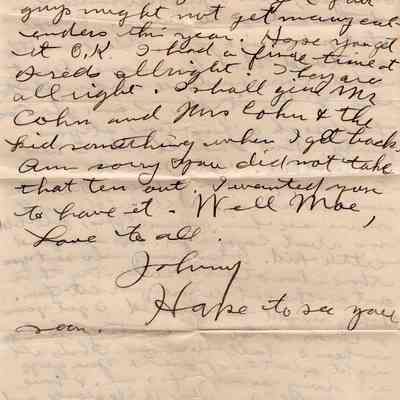 guys might not get many cal
enders this year. Hope you get
it O.K. I had a fine time at
Freds allright. They are
all right. I shall give Mr
Cohn and Mrs Cohn & the
kid something when I get back.
Am sorry you did not take
that ten out. I wanted you
to have it. Well Moe,
Love to all.
Johnny
Hope to see you
soon.